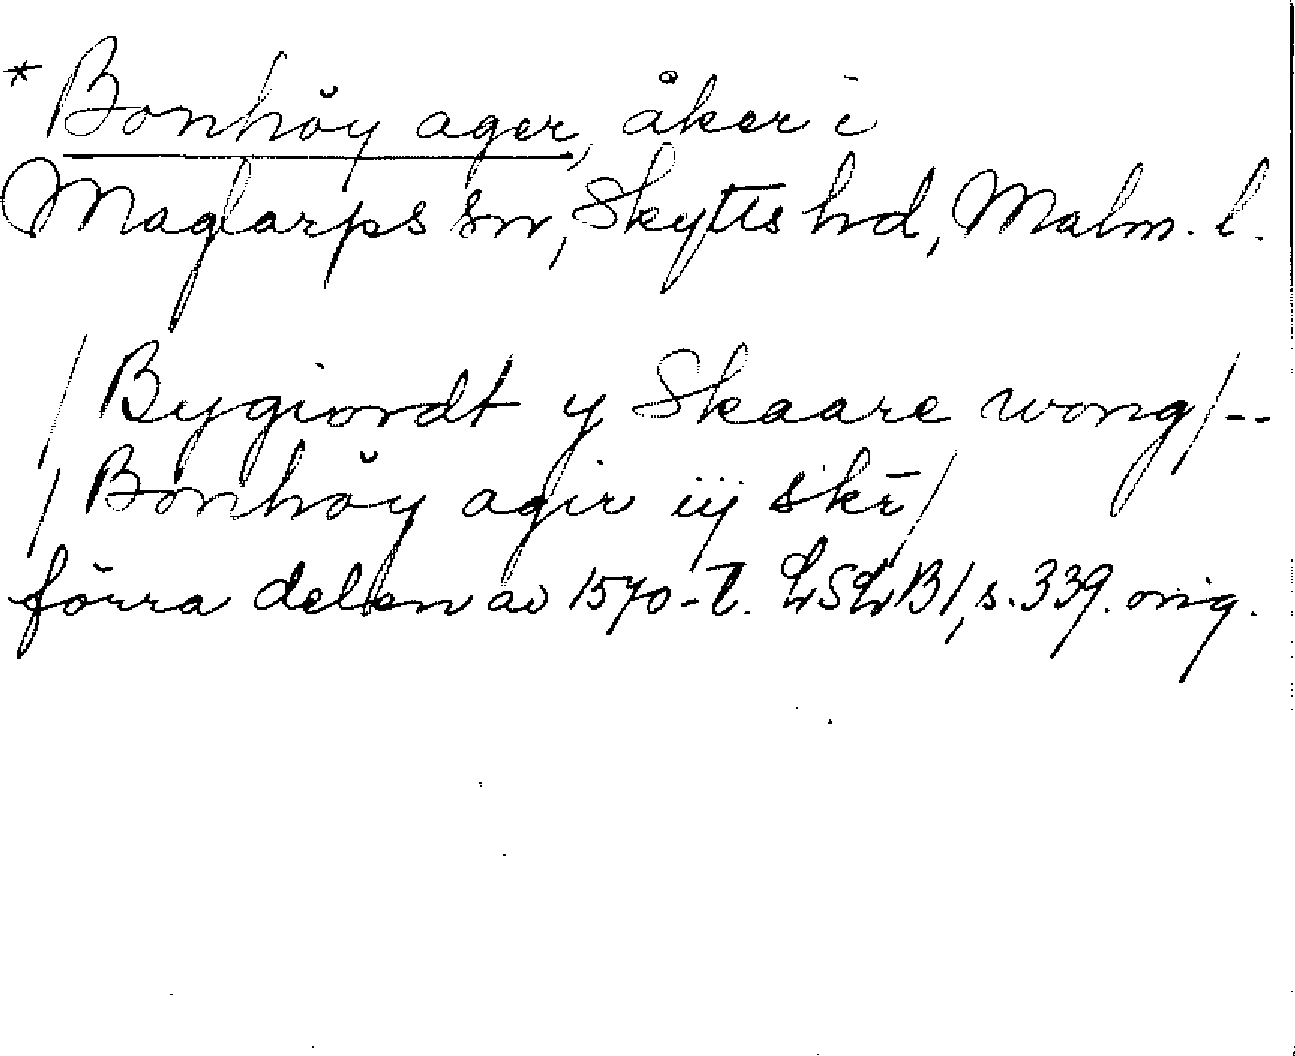 * Bonhöy ager, åker i
Maglarps sn, Skytts hd, Malm. l.
/Bygiordt y Skaare wong/--
/Bonhöy agir iij skr̄/
förra delen av 1570-t. LSLB1, s. 339. orig.